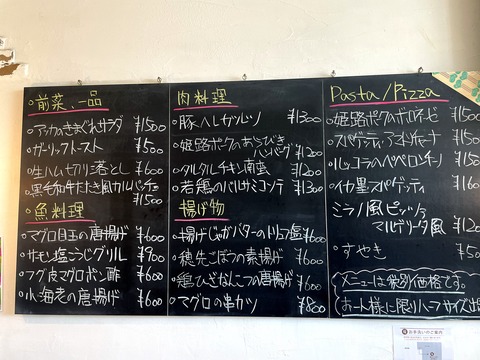 前菜、一品
・アッカのきまぐれサラダ ¥1500
・ガーリックトースト ¥500
・生ハム切り落とし ¥600
・黒毛和牛たたき風カルパッチョ ¥1500
魚料理
・マグロ目玉の唐揚げ ¥600
・サモン塩こうじグリル ¥900
・フグ皮マグロポン酢 ¥600
・小海老の唐揚げ ¥600
肉料理
・豚ヘレカツレツ ¥1300
・姫路ポークのあらびきハンバーグ ¥1200
・タルタルチキン南蛮 ¥1200
・若鶏のバルサミコソテ ¥1300
揚げ物
・揚げじゃがバターのトリュフ塩 ¥600
・穂先ごぼうの素揚げ ¥600
・鶏ひざなんこつの唐揚げ ¥600
・マグロの串カツ ¥800
Pasta/Pizza
・姫路ポークのボロネーゼ
・スパゲティ アマトリチャーナ
・ルッコラのペペロンチーノ
・イカ墨スパゲティ
・ミラノ風ピッツァ
マルゲリータ風
・すやき
メニューは税別価格です。
お一人様に限りハーフサイズ